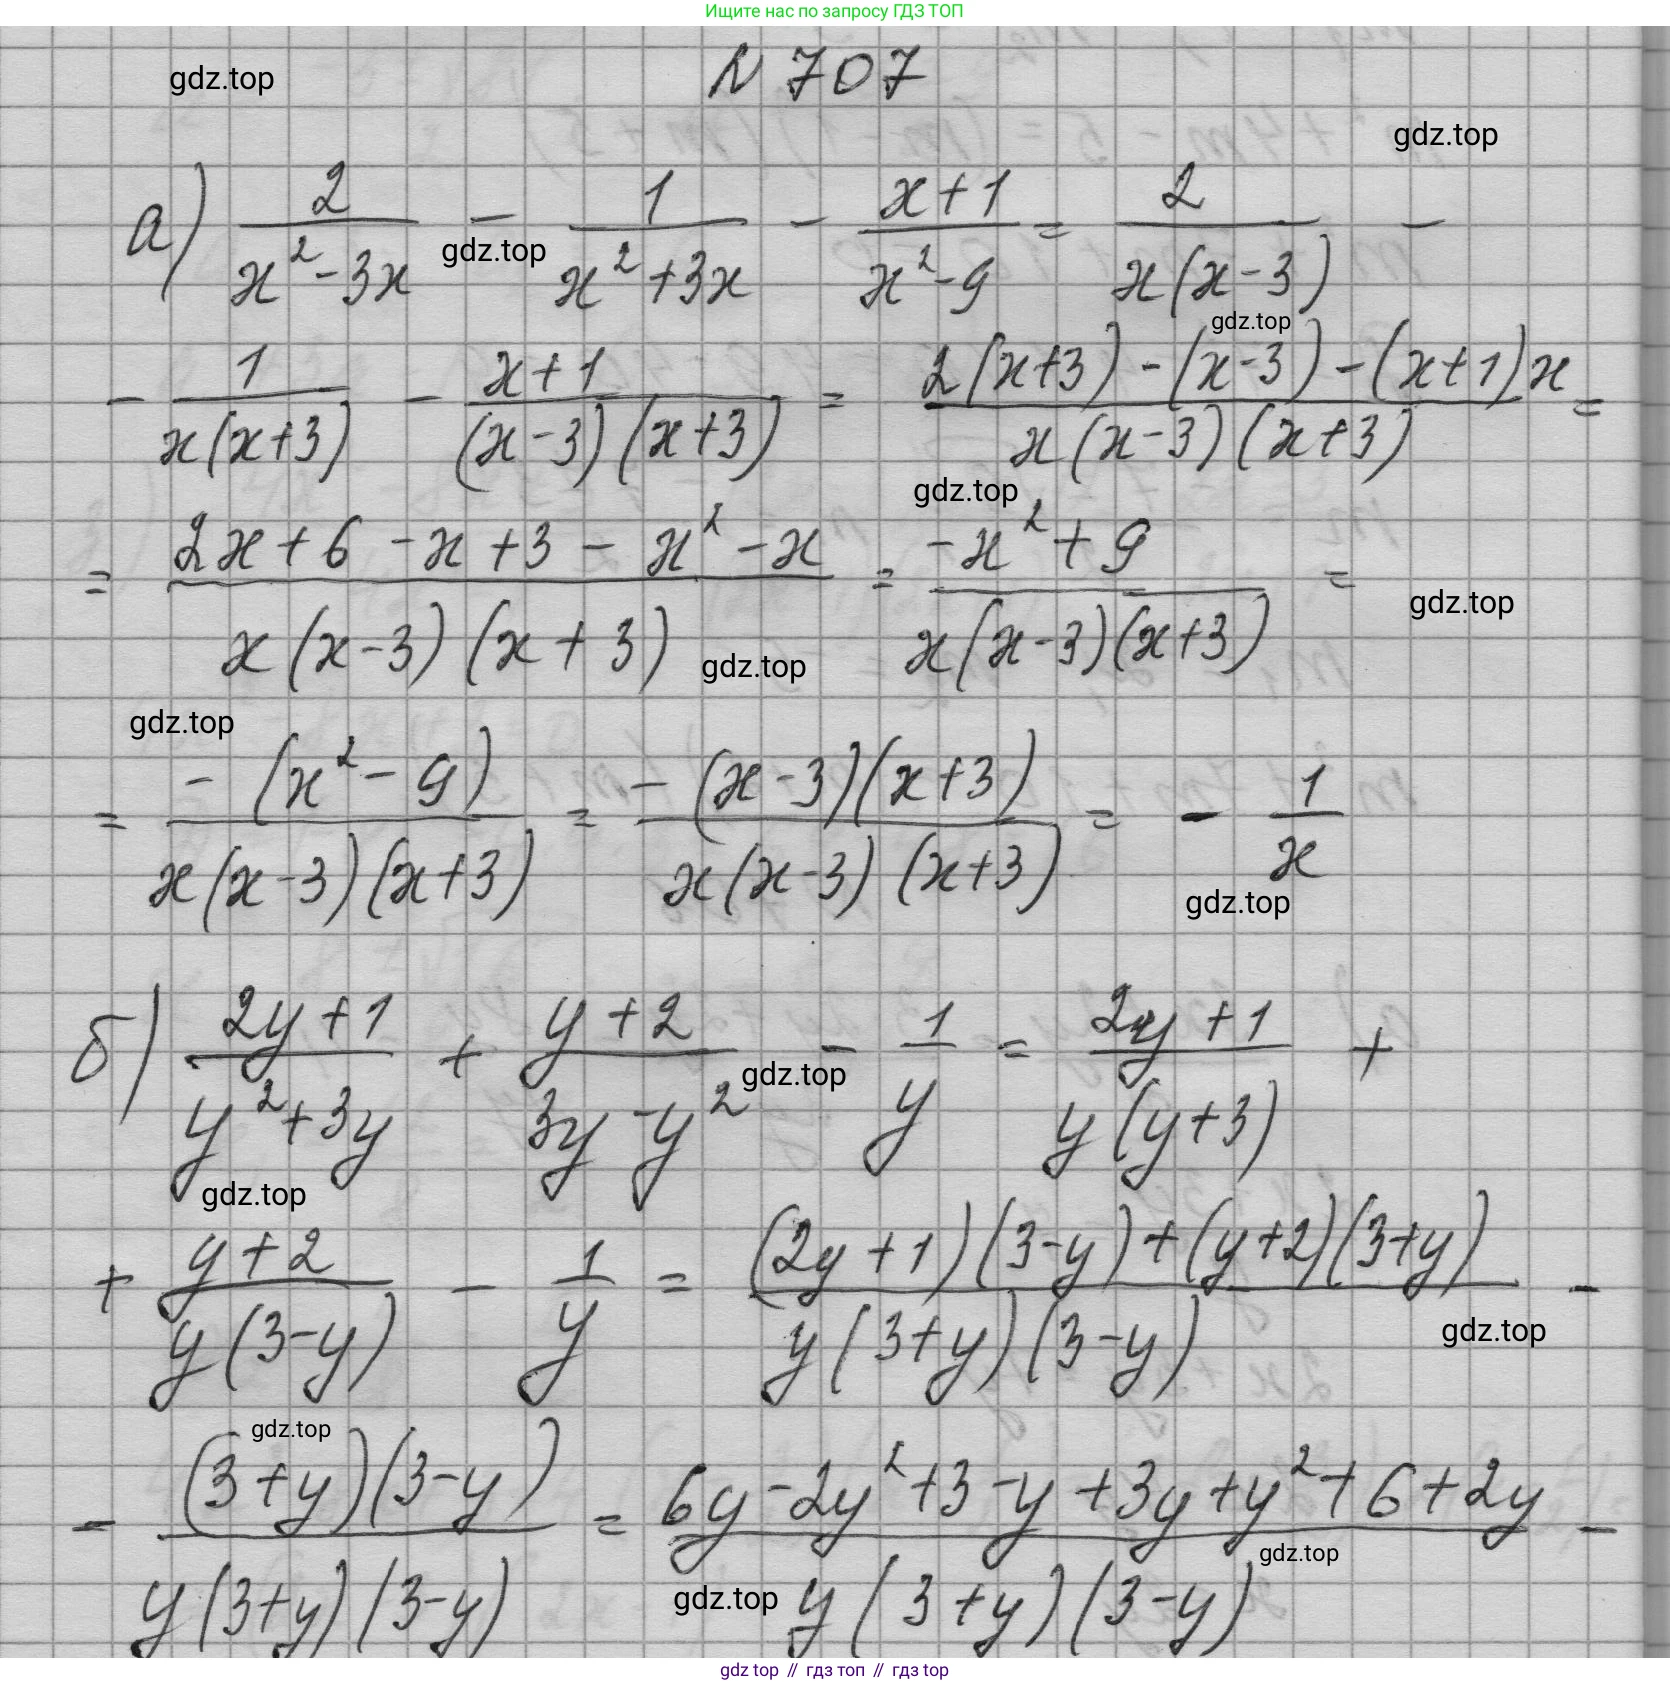 Ищите нас по запросу ГДЗ ТОП
gdz.top
N 707
gdz.top
а) 2/(x²-3x) - 1/(x²+3x) - (x+1)/(x²-9) = 2/(x(x-3)) -
gdz.top
gdz.top
- 1/(x(x+3)) - (x+1)/((x-3)(x+3)) = (2(x+3)-(x-3)-(x+1)x)/(x(x-3)(x+3)) =
gdz.top
= (2x+6-x+3-x²-x)/(x(x-3)(x+3)) = (-x²+9)/(x(x-3)(x+3)) =
gdz.top
gdz.top
gdz.top
= (-(x²-9))/(x(x-3)(x+3)) = (-(x-3)(x+3))/(x(x-3)(x+3)) = - 1/x
gdz.top
б) (2y+1)/(y²+3y) + (y+2)/(3y-y²) - 1/y = (2y+1)/(y(y+3)) +
gdz.top
gdz.top
+ (y+2)/(y(3-y)) - 1/y = ((2y+1)(3-y)+(y+2)(3+y))/(y(3+y)(3-y)) -
gdz.top
gdz.top
- ((3+y)(3-y))/(y(3+y)(3-y)) = (6y-2y²+3-y+3y+y²+6+2y)/(y(3+y)(3-y)) -
gdz.top
gdz.top
gdz top // гдз топ // гдз top